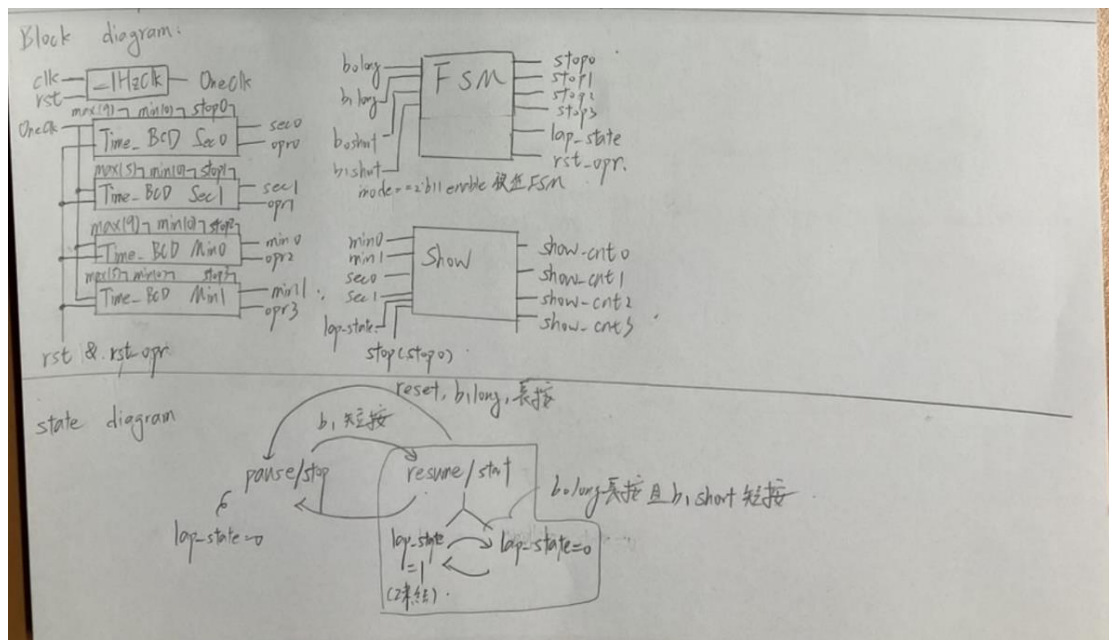 Block diagram:
clk
rst
=1HzClk
OneClk
OneClk
max(9) min(0) stop0
Time_BCD Sec0
sec0
opr0
max(5) min(0) stop1
Time_BCD Sec1
sec1
opr1
max(9) min(0) stop2
Time_BCD Min0
min0
opr2
max(5) min(0) stop3
Time_BCD Min1
min1
opr3
rst & rst_opr
b0long
b1long
b0short
b1short
FSM
stop0
stop1
stop2
stop3
lap_state
rst_opr.
mode==2'b11 enable FSM
min0
min1
sec0
sec1
lap_state
stop(stop0)
Show
show_cnt0
show_cnt1
show_cnt2
show_cnt3
state diagram
reset, b1long, 長按
b1 短按
pause/stop
resume/start
lap_state=0
lap_state
=1
lap_state=0
b0long 長按且 b1short 短按